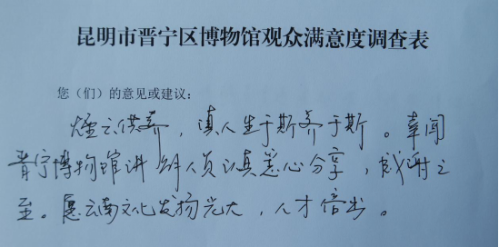 昆明市晋宁区博物馆观众满意度调查表
您（们）的意见或建议：
烟云供养，滇人生于斯养于斯。幸闻
晋宁博物馆讲解人员认真悉心分享，感谢之
至。愿云南文化发扬光大，人才倍出。